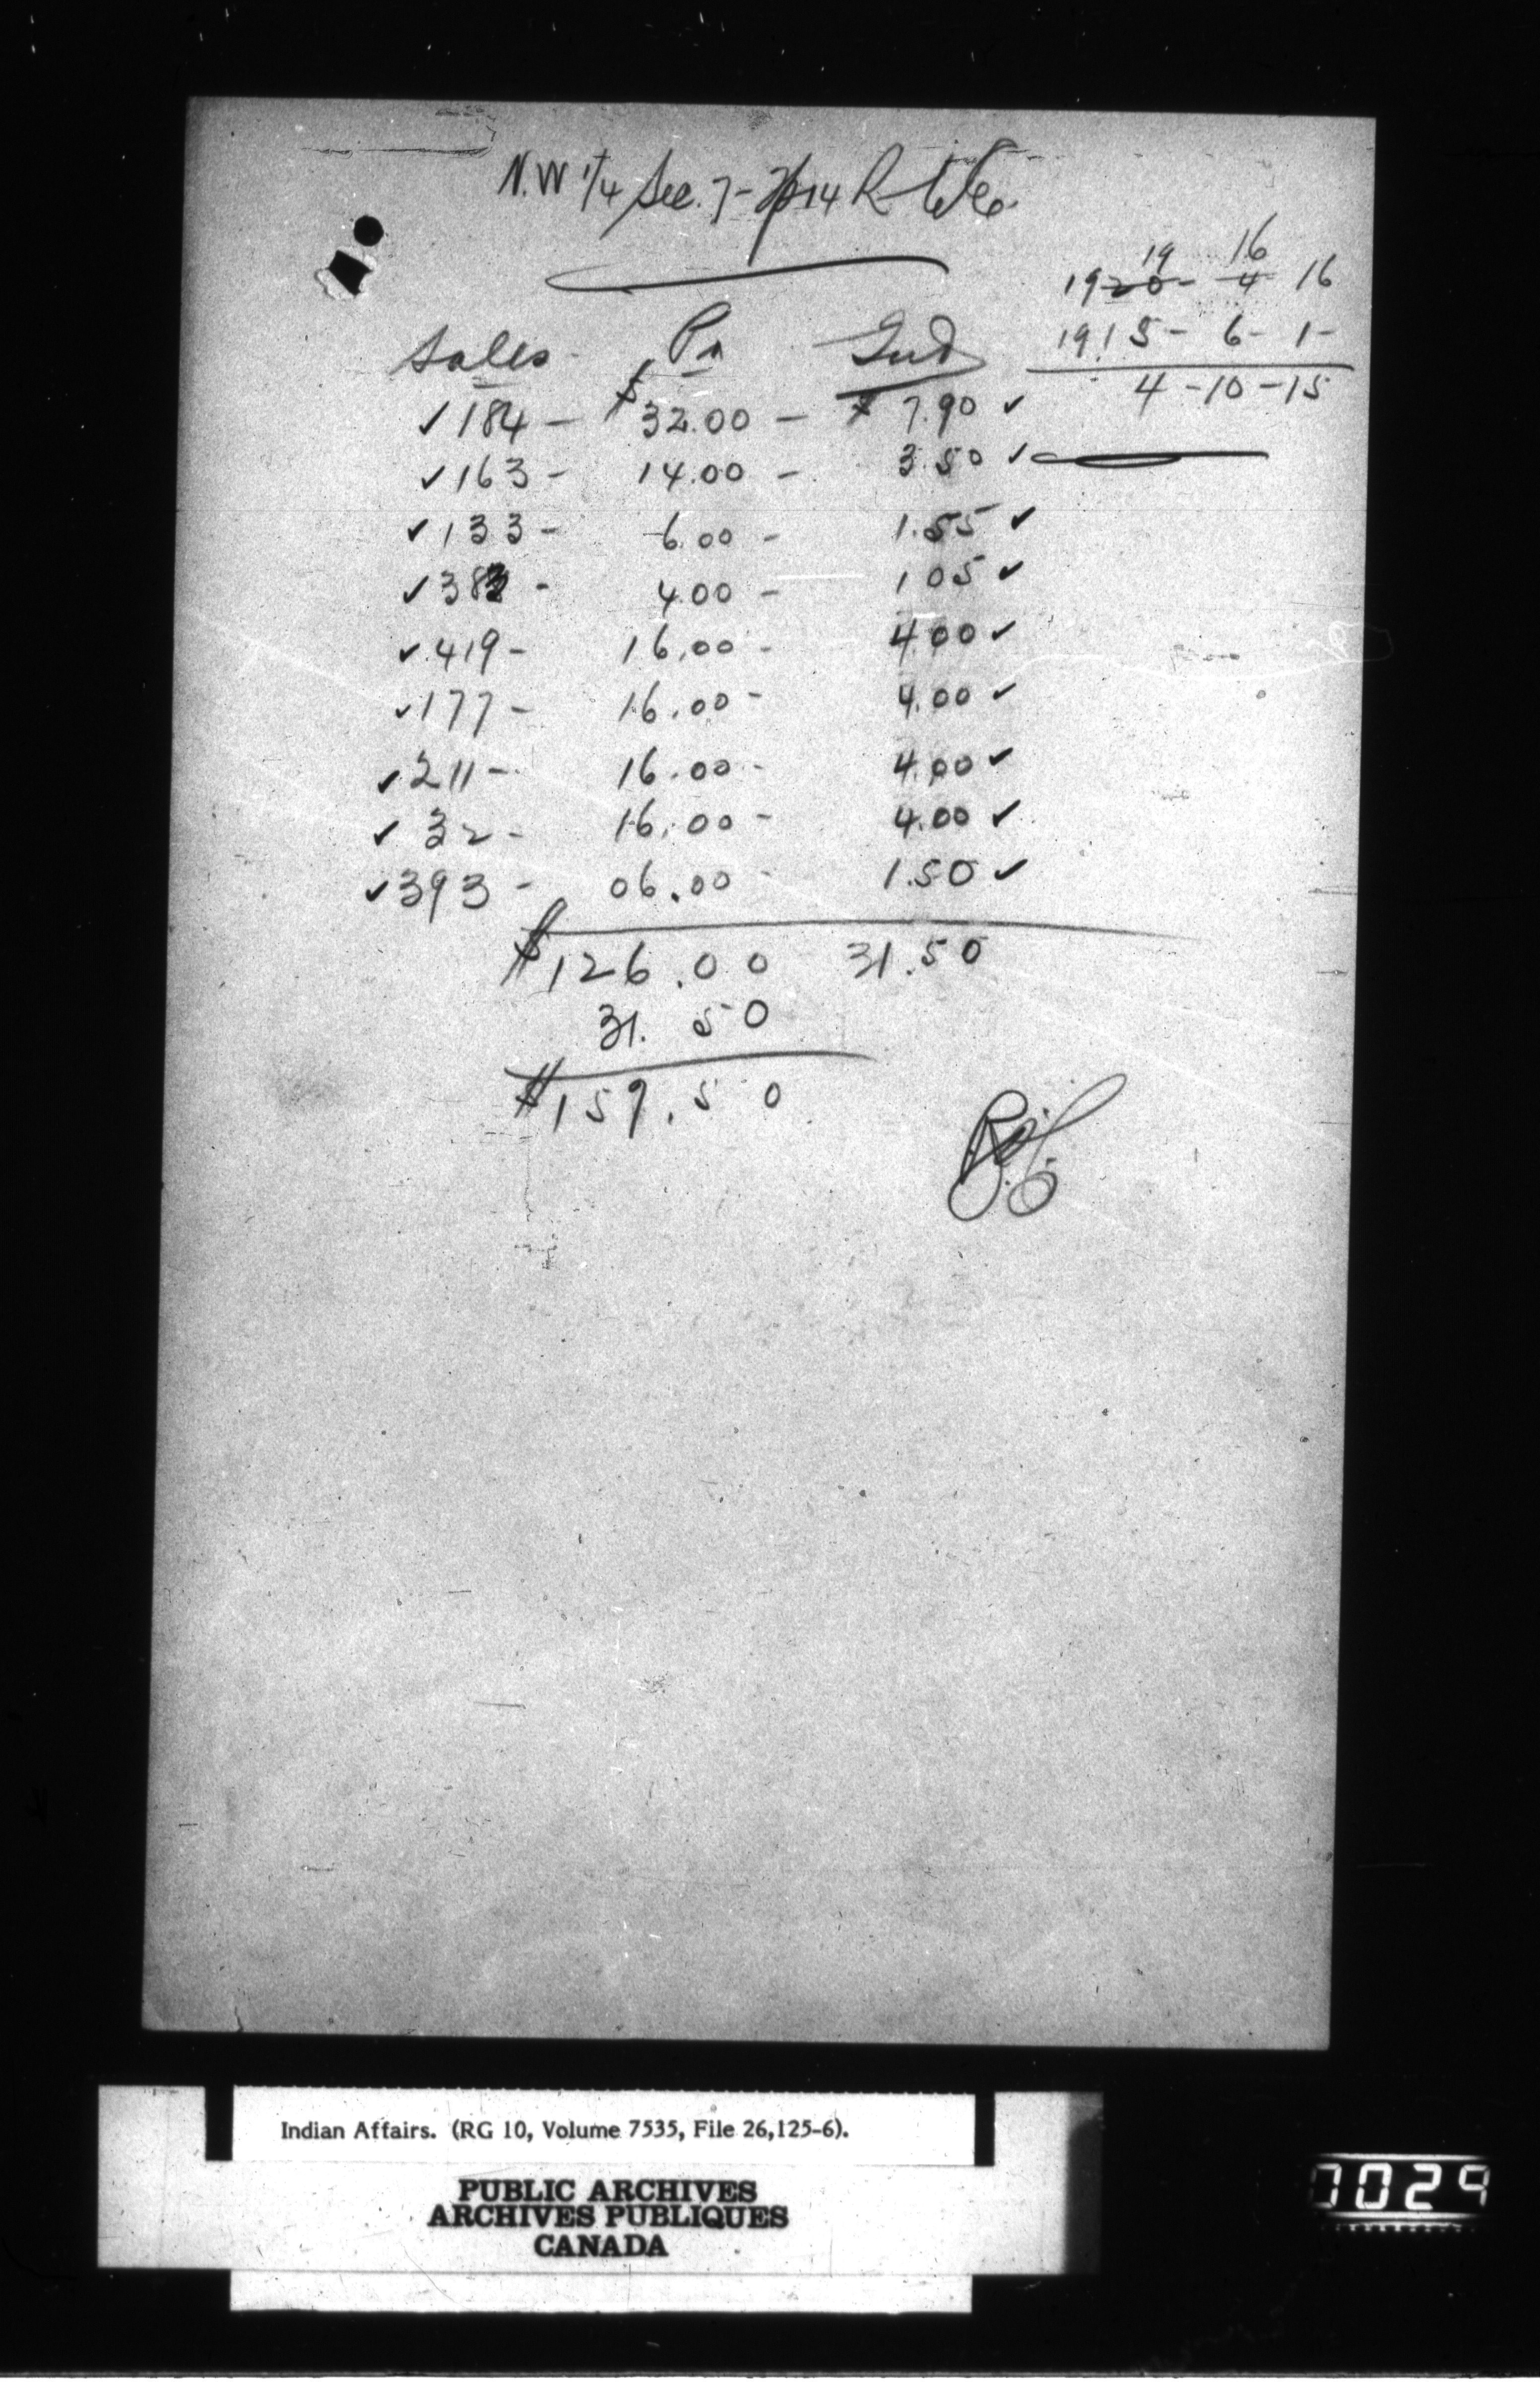 N.W 1/4 Sec. 7 - Tp 14 R
Sales Pr Int
✓ 184 - $32.00 - $7.90 ✓
✓ 163 - 14.00 - 3.50 ✓
✓ 133 - 6.00 - 1.55 ✓
✓ 383 - 4.00 - 1 05 ✓
✓ 419 - 16.00 - 4.00 ✓
✓ 177 - 16.00 - 4.00 ✓
✓ 211 - 16.00 - 4.00 ✓
✓ 32 - 16.00 - 4.00 ✓
✓ 393 - 06.00 - 1.50 ✓
$126.00 31.50
31.50
$157.50
19 16
1920 - 4 16
1915 - 6 - 1 -
4 - 10 - 15
Indian Affairs. (RG 10, Volume 7535, File 26,125-6).
PUBLIC ARCHIVES
ARCHIVES PUBLIQUES
CANADA
0029